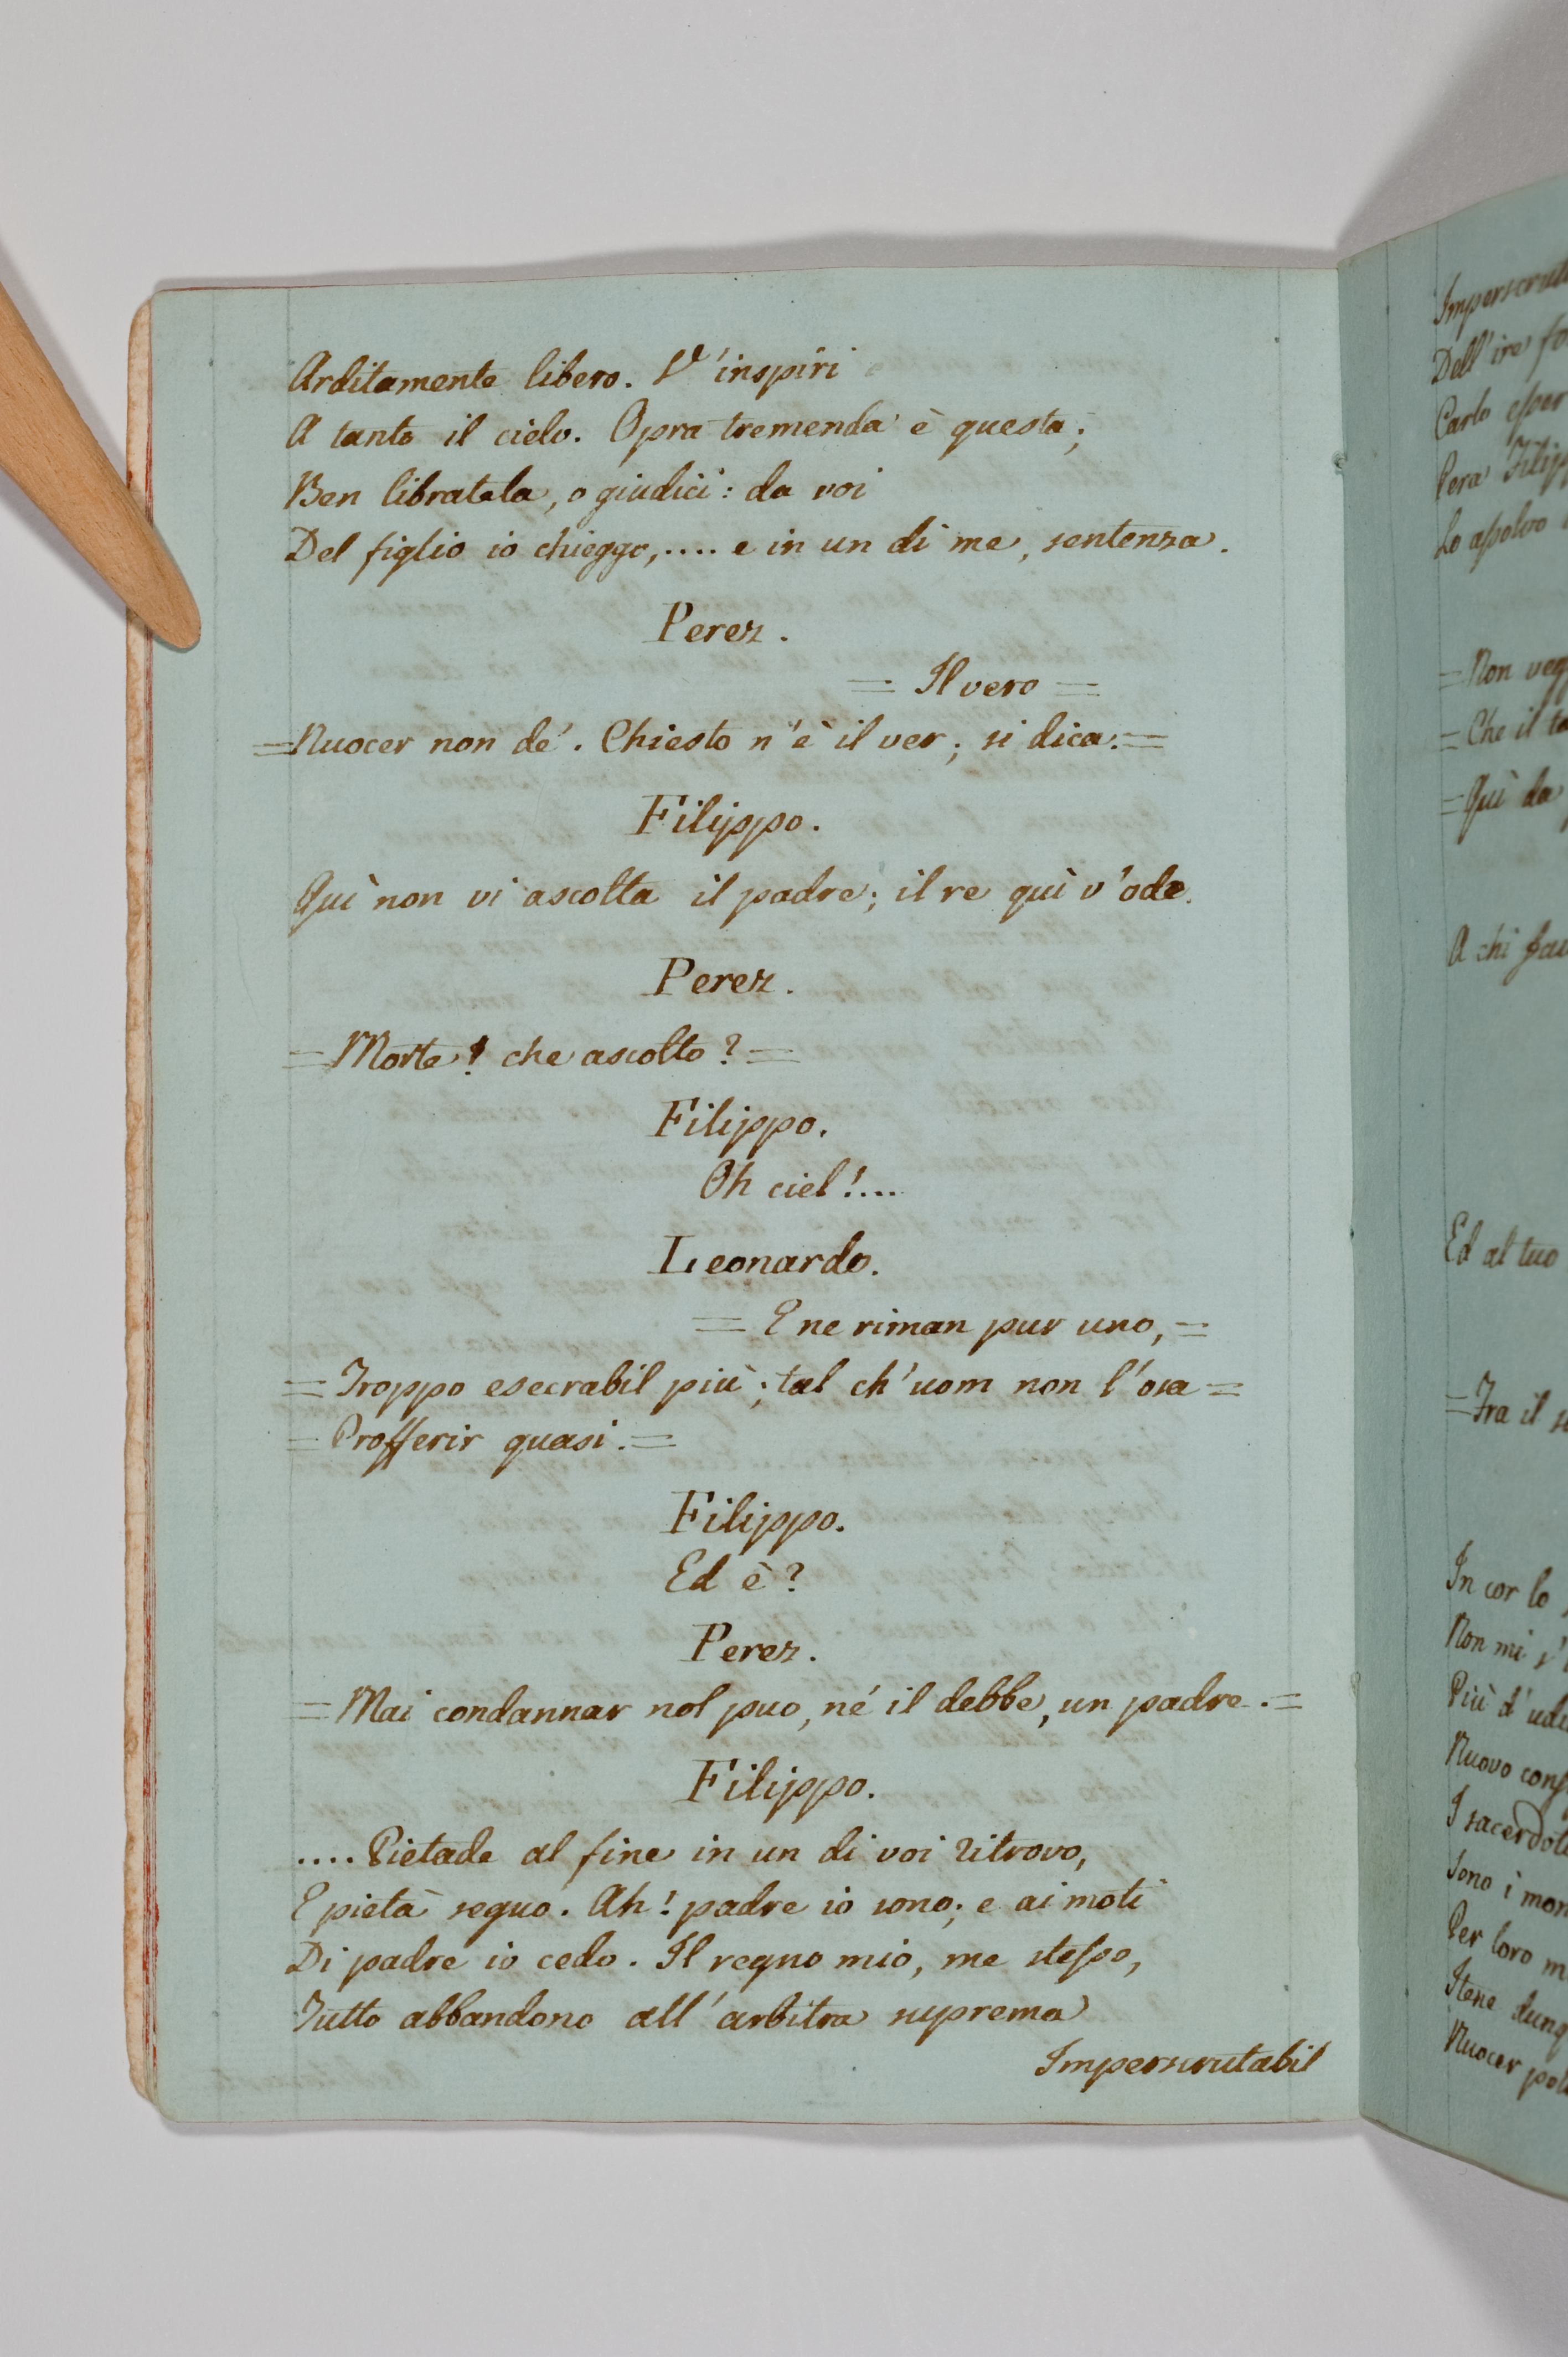 Arditamente libero. V'inspiri
A tanto il cielo. Opra tremenda è questa;
Ben libratela, o giudici: da voi
Del figlio io chieggo,.... e in un di me, sentenza.
Perez.
= Il vero =
= Nuocer non de'. Chiesto n'è il ver; si dica. =
Filippo.
Quì non vi ascolta il padre; il re quì v'ode.
Perez.
= Morte! che ascolto? =
Filippo.
Oh ciel!....
Leonardo.
= E ne riman pur uno, =
= Troppo esecrabil più; tal ch'uom non l'osa =
= Profferir quasi. =
Filippo.
Ed è?
Perez.
= Mai condannar nol puo, né il debbe, un padre. =
Filippo.
.... Pietade al fine in un di voi ritrovo,
E pietà seguo. Ah! padre io sono; e ai moti
Di padre io cedo. Il regno mio, me stesso,
Tutto abbandono all'arbitra suprema
Imperscrutabil
Dell'ire
Carlo
Pera
Lo assolvo
= Non
= Che il
= Quì da
A chi
Ed al tuo
= Tra il
In cor lo
Non mi
Più d'
Nuovo
I
Sono i
Per loro
Itene
Nuocer